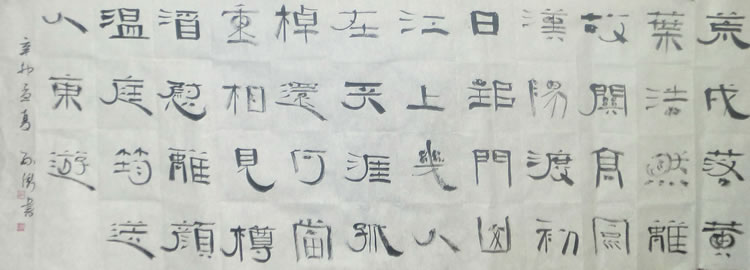 荒戍落黃
葉浩然離
故關高風
漢陽渡初
日郢門山
江上幾人
在天涯孤
棹還何當
重相見樽
酒慰離顏
溫庭筠送
人東遊
辛卯孟夏 書